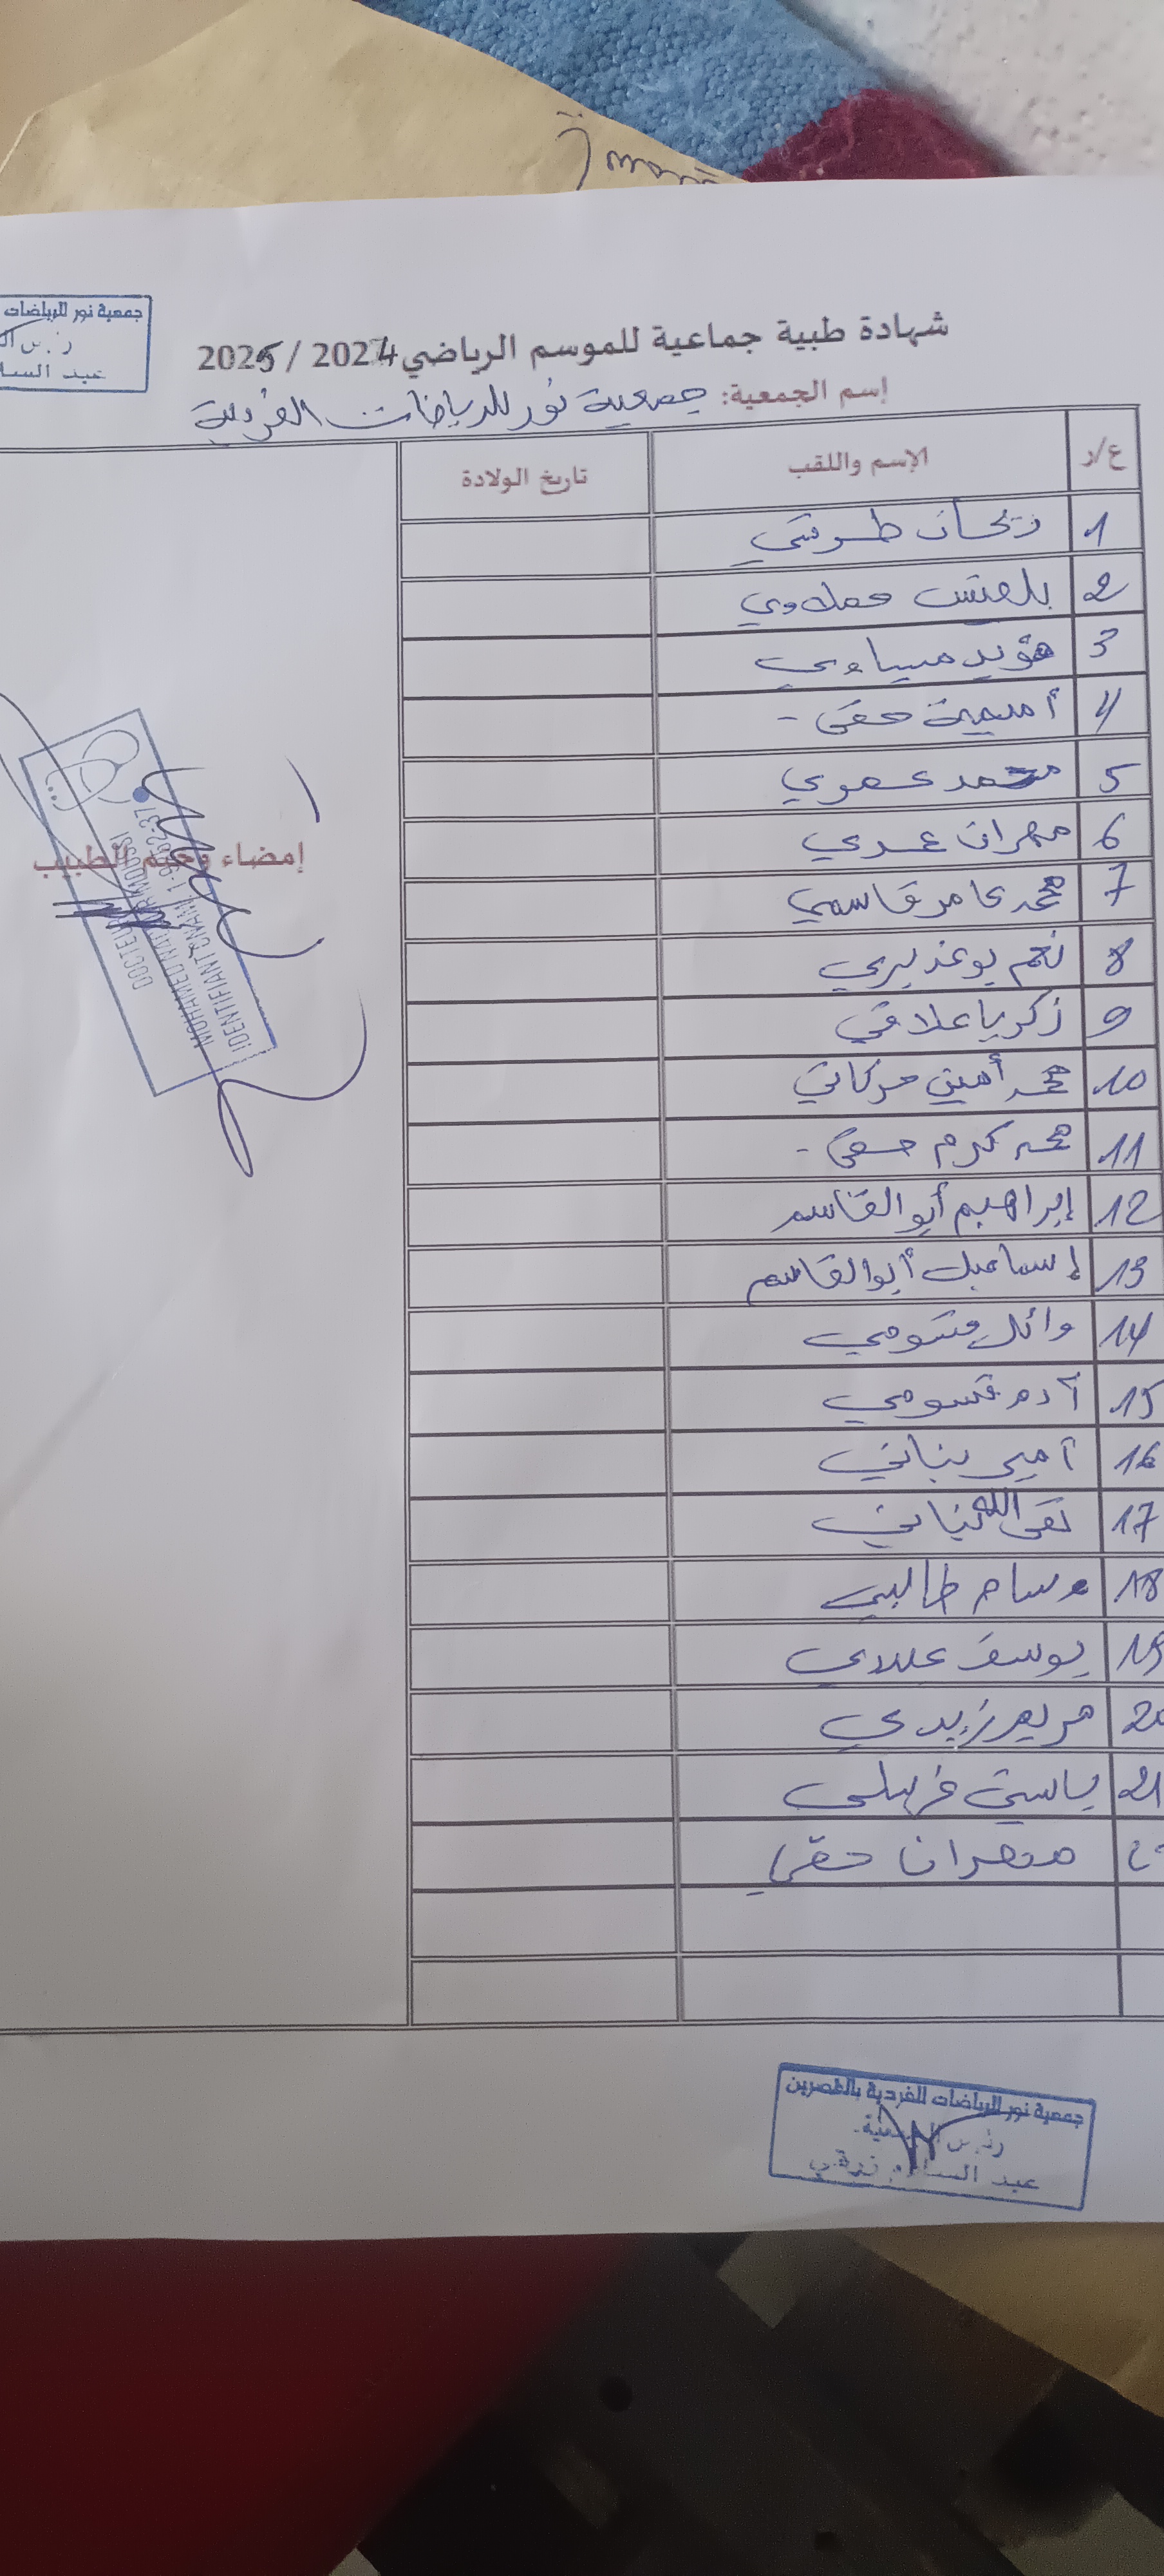 جمعية نور للرياضات
شهادة طبية جماعية للموسم الرياضي 2024 / 2025
إسم الجمعية: جمعية نور للرياضات الفردية
ع/ر الإسم واللقب تاريخ الولادة
1
2 بلقيس
3 مؤيد عيساوي
4 أميمة حقي -
5 محمد عموري
6 مهران عمري
7 محمد عامر قاسمي
8 نعم بوغديري
9 زكريا علاقي
10 محمد أمين حركاتي
11 محمد كرم حقي -
12 إبراهيم أبو القاسم
13 إسماعيل أبو القاسم
14 وائل قسومي
15 آدم قسومي
16 أمير بناني
17 تقى الله بناني
18 وسام طالبي
19 يوسف
20 مريم زيدي
21 ياسين
مهران حقي
إمضاء وختم الطبيب
DOCTEUR
MOHAMED
IDENTIFIANT CNAM
جمعية نور للرياضات الفردية بالقصرين
رئيس الجمعية
عبد السلام زرقي